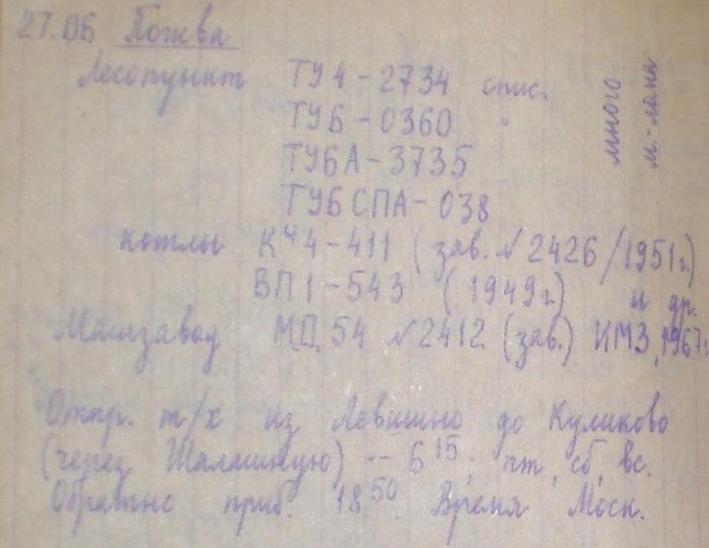 27.06 Пожва
Лесопункт ТУ4-2734 спис.
ТУ6-0360 "
ТУ6А-3735
ТУ6СПА-038
много
м.-лома
котлы Кч4-411 (зав. № 2426/1951 г.)
ВП1-543 (1949 г.) и др.
Машзавод МД54 №2412 (зав.) КМЗ, 1967 г.
Отпр. т/х из Левшино до Куликово
(через Шалашную) -- 6 15. чт, сб, вс.
Обратно приб. 18 50. Время Моск.